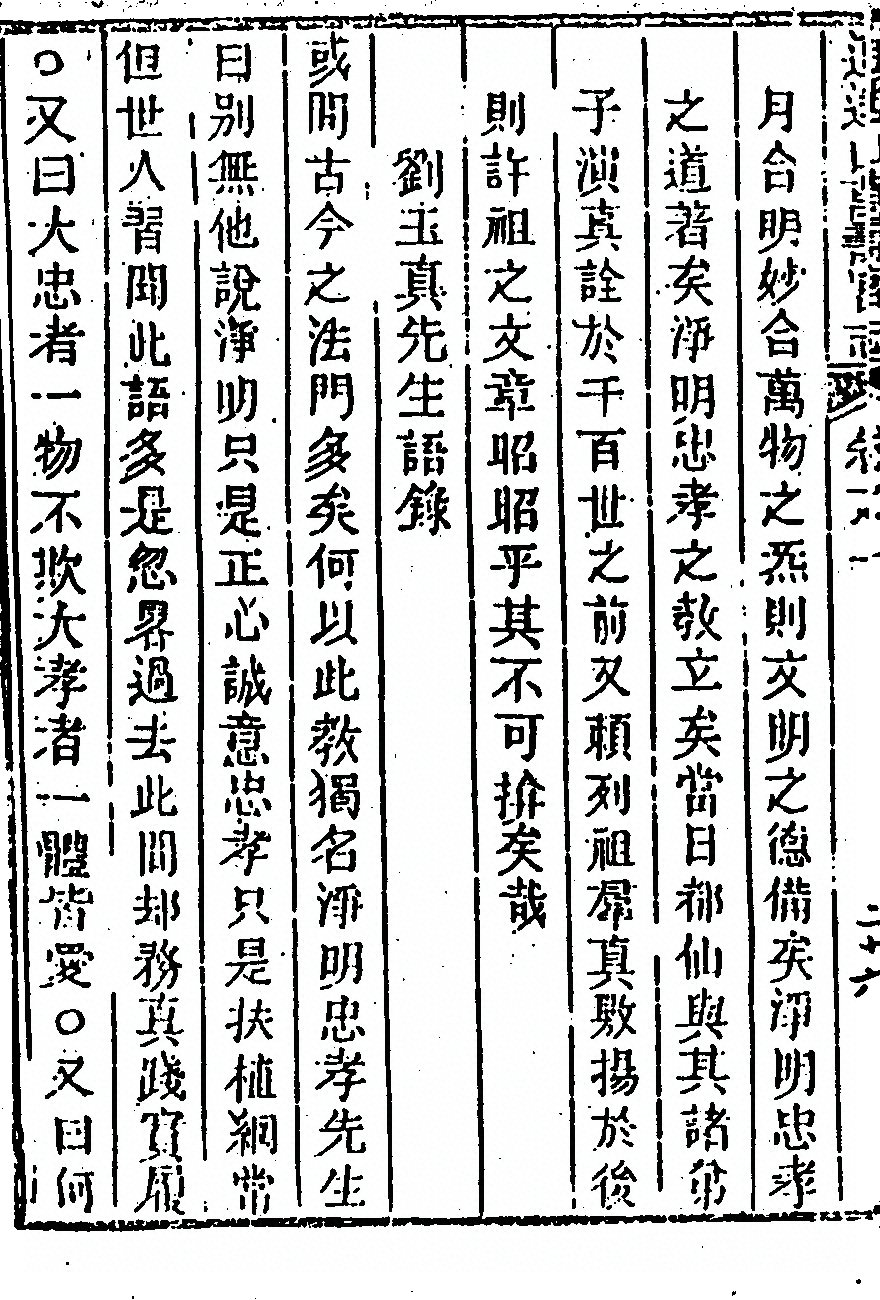 月合明妙合萬物之炁則文明之德備矣淨明忠孝
之道著矣淨明忠孝之教立矣當日都仙與其諸弟
子演真詮於千百世之前又頼列祖羣真敭揚於後
則許祖之文章昭昭乎其不可揜矣哉
劉玉真先生語錄
或問古今之法門多矣何以此教獨名淨明忠孝先生
曰別無他說淨明只是正心誠意忠孝只是扶植綱常
但世人習聞此語多是忽畧過去此間却務真踐實履
○又曰大忠者一物不欺大孝者一體皆愛○又曰何
二十六